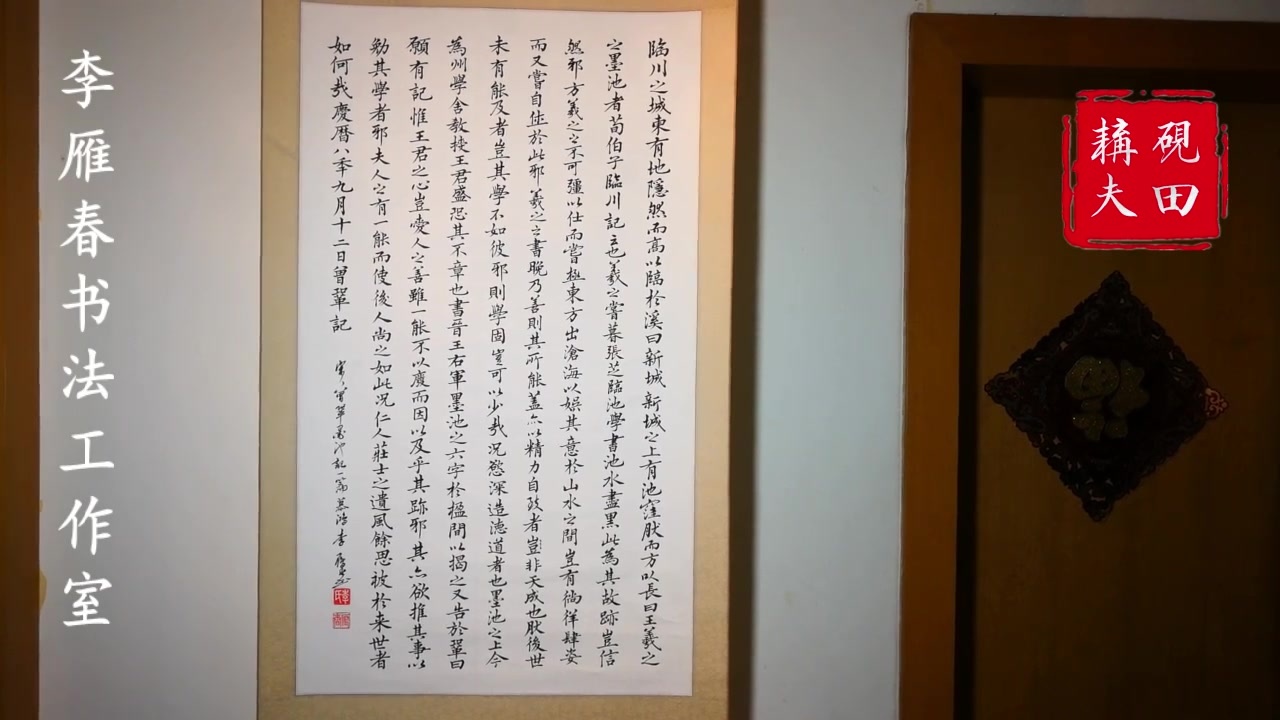 李雁春书法工作室
硯田
耩夫
臨川之城東有地隱然而高以臨於溪曰新城新城之上有池窪肰而方以長曰王羲之
之墨池者荀伯子臨川記云也羲之嘗慕張芝臨池學書池水盡黑此為其故跡豈信
然邪方羲之之不可彊以仕而嘗極東方出滄海以娛其意於山水之間豈有徜徉肆姿
而又嘗自休於此邪羲之之書晚乃善則其所能蓋亦以精力自致者豈非天成也肰後世
未有能及者豈其學不如彼邪則學固豈可以少哉况慾深造德道者也墨池之上今
為州學舍教授王君盛恐其不章也書晉王右軍墨池之六字於楹間以揭之又告於鞏曰
願有記惟王君之心豈愛人之善雖一能不以廢而因以及乎其跡邪其亦欲推其事以
勉其學者邪夫人之有一能而使後人尚之如此况仁人莊士之遺風餘思被於来世者
如何哉慶曆八年九月十二日曾鞏記
曾鞏墨池記一篇 李雁春